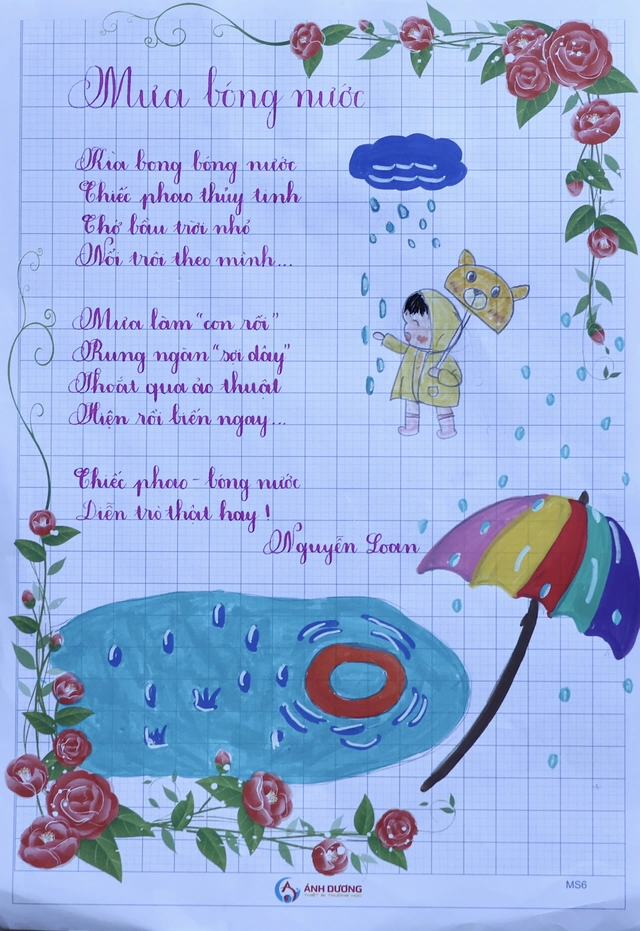 Mưa bóng nước
Kìa bong bóng nước
Chiếc phao thủy tinh
Chở bầu trời nhỏ
Nổi trôi theo mình...
Mưa làm "con rối"
Rung ngàn "sợi dây"
Thoắt qua ảo thuật
Hiện rồi biến ngay...
Chiếc phao - bóng nước
Diễn trò thật hay!
Nguyễn Loan
ÁNH DƯƠNG
THIẾT BỊ TRƯỜNG HỌC
MS6